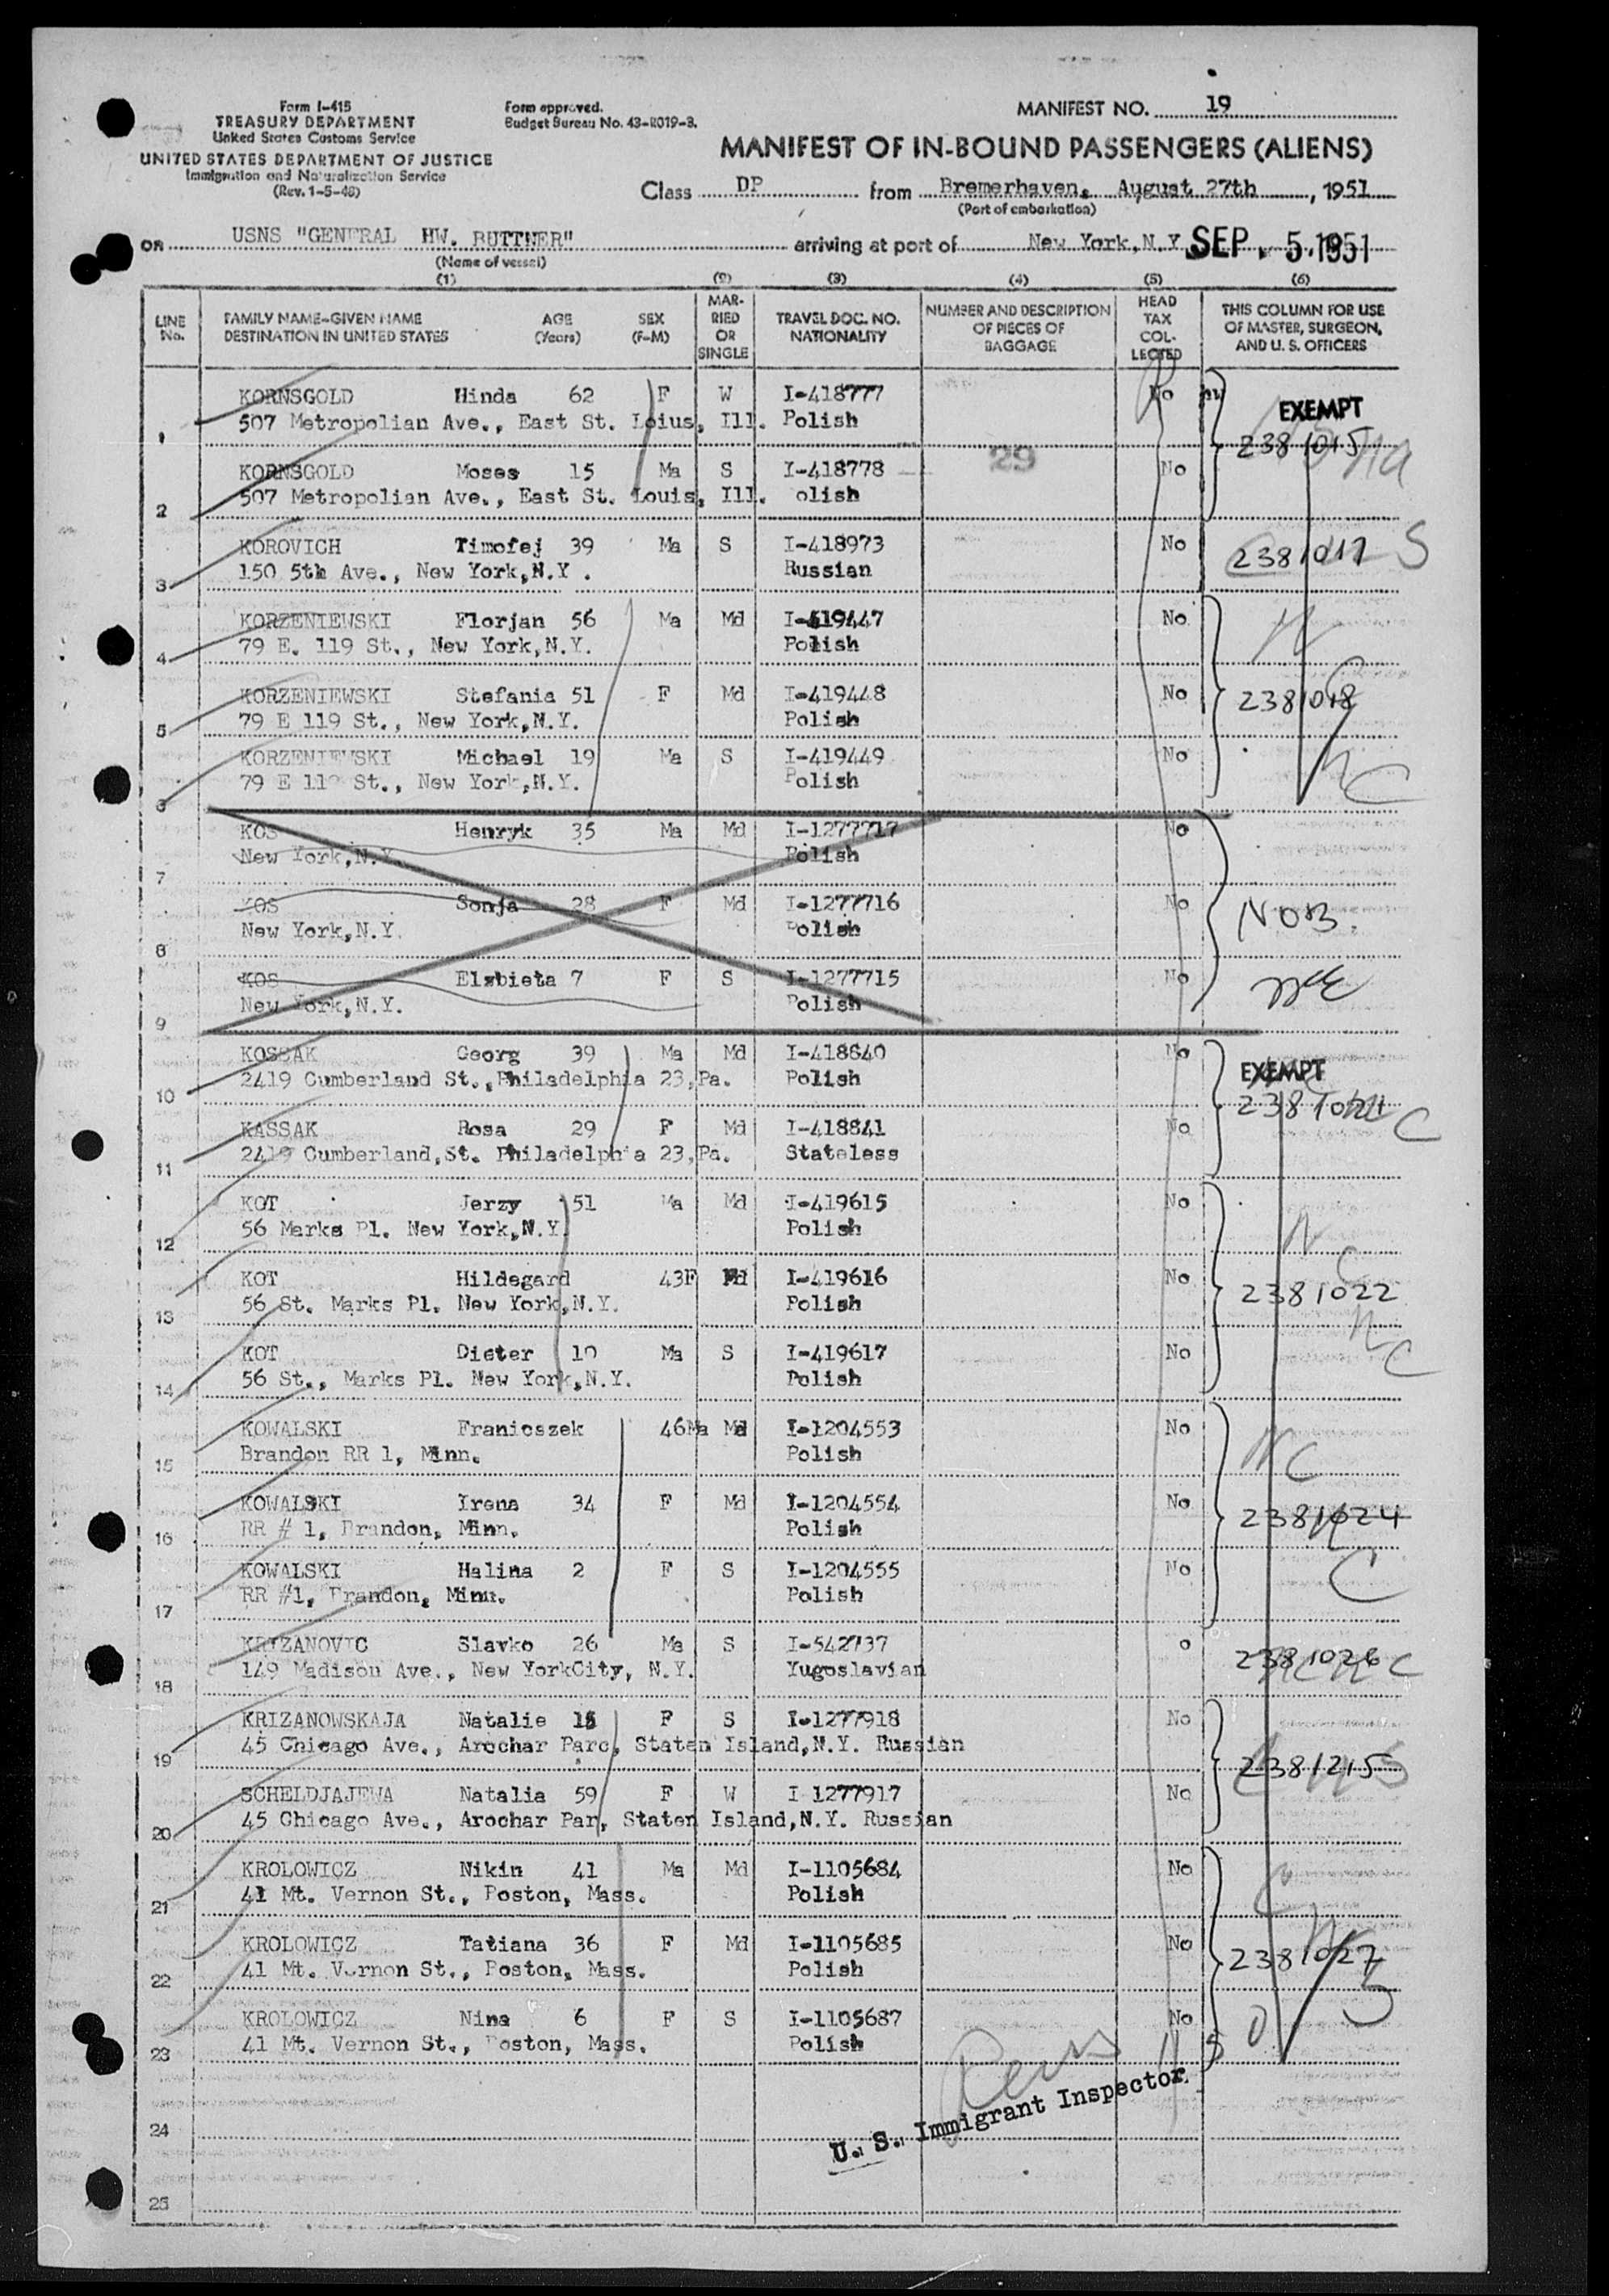 Form I-415
TREASURY DEPARTMENT
United States Customs Service
UNITED STATES DEPARTMENT OF JUSTICE
Immigration and Naturalization Service
(Rev. 1-5-48)
Form approved.
Budget Bureau No. 43-R019-3.
MANIFEST NO. 19
MANIFEST OF IN-BOUND PASSENGERS (ALIENS)
Class DP from Bremerhaven, August 27th, 1951
(Port of embarkation)
on USNS "GENERAL HW. BUTTNER" arriving at port of New York, N.Y. SEP. 5.1951
(Name of vessel)
(1) (2) (3) (4) (5) (6)
LINE No.
FAMILY NAME-GIVEN NAME
DESTINATION IN UNITED STATES
AGE (Years)
SEX (F-M)
MARRIED OR SINGLE
TRAVEL DOC. NO.
NATIONALITY
NUMBER AND DESCRIPTION OF PIECES OF BAGGAGE
HEAD TAX COLLECTED
THIS COLUMN FOR USE OF MASTER, SURGEON, AND U. S. OFFICERS
KORNSGOLD Hinda 62 F W I-418777 No EXEMPT
1 507 Metropolian Ave., East St. Loius, Ill. Polish 2381015
KORNSGOLD Moses 15 Ma S I-418778 29 No
2 507 Metropolian Ave., East St. Louis, Ill. olish
KOROVICH Timofej 39 Ma S I-418973 No 2381017 S
3 150 5th Ave., New York,N.Y . Russian
KORZENIEWSKI Florjan 56 Ma Md I-419447 No
4 79 E. 119 St., New York,N.Y. Polish
KORZENIEWSKI Stefania 51 F Md I-419448 No 2381018
5 79 E 119 St., New York,N.Y. Polish
KORZENIEWSKI Michael 19 Ma S I-419449 No
6 79 E 119 St., New York,N.Y. Polish
KOS Henryk 35 Ma Md I-1277717 No
7 New York,N.Y. Polish
KOS Sonja 28 F Md I-1277716 No NOB.
8 New York,N.Y. Polish
KOS Elzbieta 7 F S I-1277715 No
9 New York,N.Y. Polish
KOSSAK Georg 39 Ma Md I-418840 No EXEMPT
10 2419 Cumberland St.,Philadelphia 23,Pa. Polish
KASSAK Rosa 29 F Md I-418841 No
11 2419 Cumberland,St. Philadelphia 23,Pa. Stateless
KOT Jerzy 51 Ma Md I-419615 No
12 56 Marks Pl. New York,N.Y. Polish
KOT Hildegard 43F Md I-419616 No 2381022
13 56 St. Marks Pl. New York,N.Y. Polish
KOT Dieter 10 Ma S I-419617 No
14 56 St., Marks Pl. New York,N.Y. Polish
KOWALSKI Franicszek 46Ma Md I-1204553 No
15 Brandon RR 1, Minn. Polish
KOWALSKI Irena 34 F Md I-1204554 No 2381024
16 RR # 1, Brandon, Minn. Polish
KOWALSKI Halina 2 F S I-1204555 No
17 RR #1, Brandon, Minn. Polish
KRIZANOVIC Slavko 26 Ma S I-542737 o 2381026
18 149 Madison Ave., New YorkCity, N.Y. Yugoslavian
KRIZANOWSKAJA Natalie F S I-1277918 No 2381215
19 45 Chicago Ave., Arochar Parc, Staten Island,N.Y. Russian
SCHELDJAJEWA Natalia 59 F W I 1277917 No
20 45 Chicago Ave., Arochar Par, Staten Island,N.Y. Russian
KROLOWICZ Nikin 41 Ma Md I-1105684 No
21 41 Mt. Vernon St., Boston, Mass. Polish
KROLOWICZ Tatiana 36 F Md I-1105685 No 2381027
22 41 Mt. Vernon St., Boston, Mass. Polish
KROLOWICZ Nina 6 F S I-1105687 No
23 41 Mt. Vernon St., Boston, Mass. Polish
U. S. Immigrant Inspector.
24
25